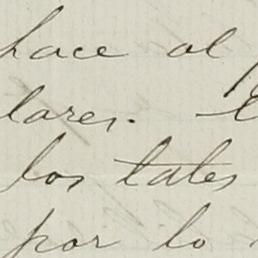 hace al
lares.
los tales
por lo